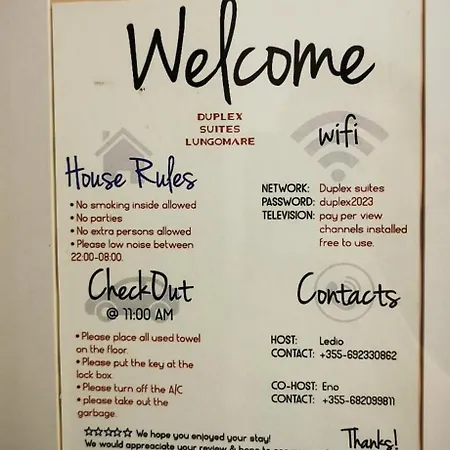 Welcome
DUPLEX
SUITES
LUNGOMARE
wifi
House Rules
• No smoking inside allowed
• No parties
• No extra persons allowed
• Please low noise between
22:00-08:00.
NETWORK: Duplex suites
PASSWORD: duplex2023
TELEVISION: pay per view
channels installed
free to use.
CheckOut
@ 11:00 AM
• Please place all used towel
on the floor.
• Please put the key at the
lock box.
• Please turn off the A/C
• please take out the
garbage.
Contacts
HOST: Ledio
CONTACT: +355-692330862
CO-HOST: Eno
CONTACT: +355-682099811
☆☆☆☆☆ We hope you enjoyed your stay!
We would appreciate your review & hope to
Thanks!